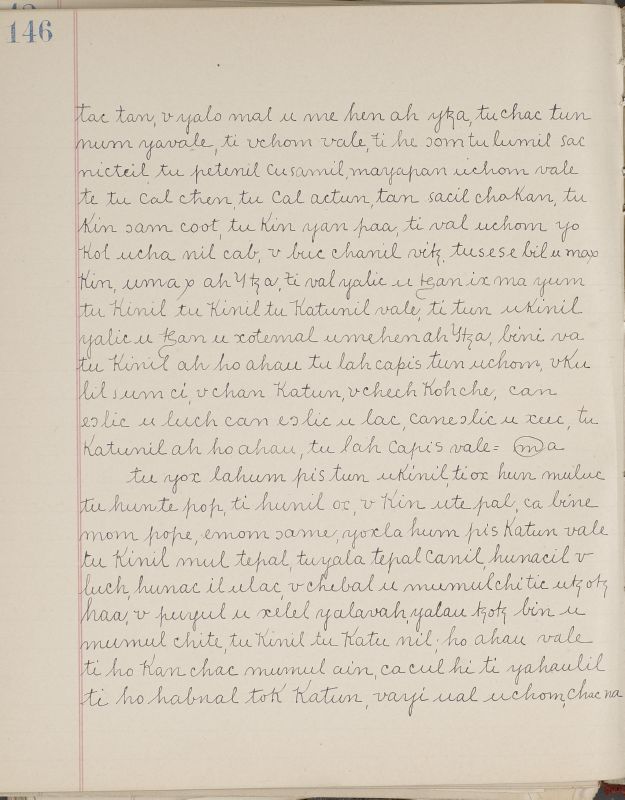 146
tac tan, v yalo mal u me hen ah ytza, tu chac tun
num yavale, ti vchom vale, ti he ɔom tu lumil sac
nicteil, tu petenil cusamil, mayapan uchom vale
te tu cal chen, tu cal actun, tan sacil chakan, tu
kin ɔam coot, tu kin yan paa, ti val uchom yo
kol ucha nil cab, v buc chanil vitz, tusese bil u max
kin, umax ah Ytza, ti val yalic u ꜩan ix ma yum
tu kinil tu kinil tu katunil vale, ti tun u kinil
yalic u ꜩan u xotemal umehen ah Ytza, bini va
tu kinil ah ho ahau tu lah capis tun uchom, vku
lil sum ci, v chan katun, v chech kohche, can
eɔlic u luch can eɔlic u lac, can eɔlic u xec, tu
katunil ah ho ahau, tu lah capis vale = ma
tu yox lahum pis tun u kinil, ti ox hun muluc
tu hunte pop, ti hunil oc, v kin u te pal, ca bine
mom pope, emom ɔame, yoxla hum pis katun vale
tu kinil mul tepal, tu yala tepal canil, hunacil v
luch, hunac il u lac, v chebal u mumulchitic utzotz
haa, v puyul u xelel yalavah, yalau tzotz bin u
mumul chite, tu kinil tu katu nil; ho ahau vale
ti ho kan chac mumul ain, ca cul hi ti yahaulil
ti ho habnal tok katun, vayi ual uchom, chac na